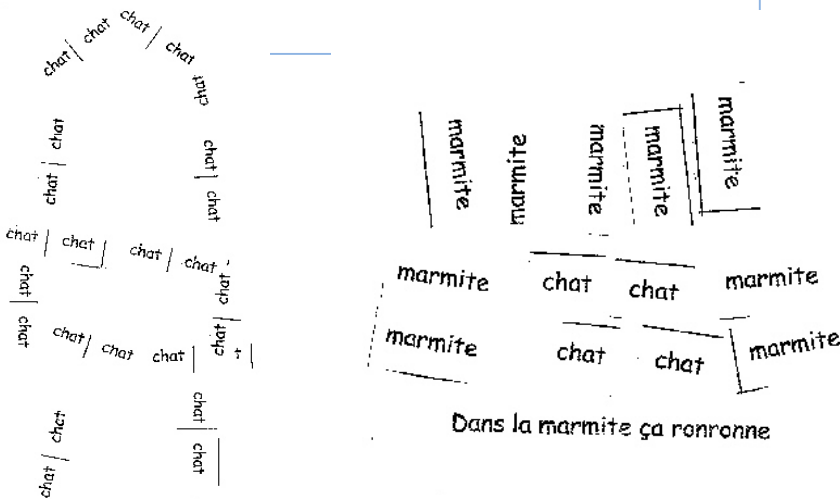 chat chat chat chat
chat
chat chat
chat chat
chat chat chat chat
chat chat
chat chat
chat chat chat t
chat chat
chat chat
marmite marmite marmite marmite marmite
marmite chat chat marmite
marmite chat chat marmite
Dans la marmite ça ronronne